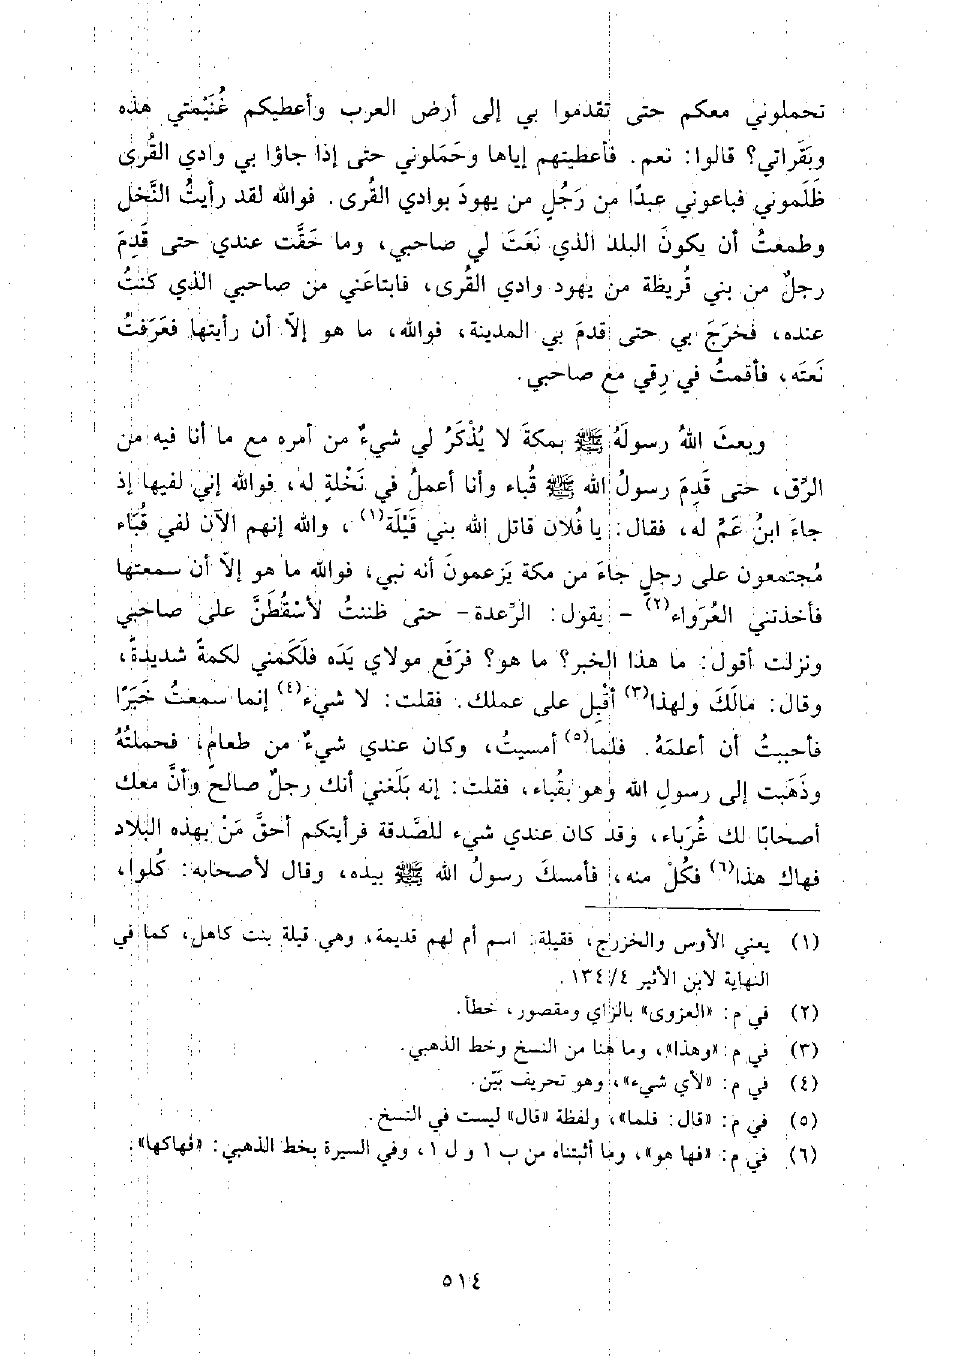 تحملوني معكم حتى تقدموا بي إلى أرض العرب وأعطيكم غُنَيْمتي هذه
وبَقَراتي؟ قالوا: نعم. فأعطيتهم إياها وحَمَلوني حتى إذا جاؤا بي وادي القُرى
ظَلَموني فباعوني عبدًا من رَجُلٍ من يهودَ بوادي القُرى. فوالله لقد رأيتُ النَّخل
وطمعتُ أن يكونَ البلد الذي نَعَتَ لي صاحبي، وما حَقَّت عندي حتى قَدِمَ
رجلٌ من بني قُريظة من يهود وادي القُرى، فابتاعَني من صاحبي الذي كنتُ
عنده، فخرَجَ بي حتى قدمَ بي المدينة، فوالله، ما هو إلاّ أن رأيتها فعَرَفتُ
نَعتَه، فأقمتُ في رِقي مع صاحبي.
وبعثَ اللهُ رسولَهُ ﷺ بمكةَ لا يُذْكَرُ لي شيءٌ من أمره مع ما أنا فيه من
الرِّق، حتى قَدِمَ رسولُ الله ﷺ قُباء وأنا أعملُ في نَخْلةٍ له، فوالله إني لفيها إذ
جاءَ ابنُ عَمٍّ له، فقال: يا فُلان قاتل الله بني قَيْلَة(١)، والله إنهم الآن لفي قُبَاء
مُجتمعون على رجلٍ جاءَ من مكة يَزعمونَ أنه نبي، فوالله ما هو إلاّ أن سمعتها
فأخذتني العُرَواء(٢) - يقول: الرِّعدة - حتى ظننتُ لأسْقُطَنَّ على صاحبي
ونزلت أقول: ما هذا الخبر؟ ما هو؟ فرَفَع مولاي يَدَه فلَكَمني لكمةً شديدةً،
وقال: مالَكَ ولهذا(٣) أقْبِل على عملك. فقلت: لا شيءَ(٤) إنما سمعتُ خَبَرًا
فأحببتُ أن أعلمَهُ. فلما(٥) أمسيتُ، وكان عندي شيءٌ من طعامٍ، فحملتُهُ
وذَهَبت إلى رسولِ الله وهو بقُباء، فقلت: إنه بَلَغني أنك رجلٌ صالحٌ وأنَّ معك
أصحابًا لك غُرَباء، وقد كان عندي شيء للصَّدقة فرأيتكم أحقَّ مَنْ بهذه البلاد
فهاك هذا(٦) فكُلْ منه، فأمسكَ رسولُ الله ﷺ بيده، وقال لأصحابه: كُلوا،
(١) يعني الأوس والخزرج، فقيلة: اسم أم لهم قديمة، وهي قيلة بنت كاهل، كما في
النهاية لابن الأثير ٤/ ١٣٤.
(٢) في م: «العزوى» بالزاي ومقصور، خطأ.
(٣) في م: «وهذا»، وما هنا من النسخ وخط الذهبي.
(٤) في م: «لأي شيء»، وهو تحريف بَيّن.
(٥) في م: «قال: فلما»، ولفظة «قال» ليست في النسخ.
(٦) في م: «فها هو»، وما أثبتناه من ب ١ و ل ١، وفي السيرة بخط الذهبي: «فهاكها».
٥١٤